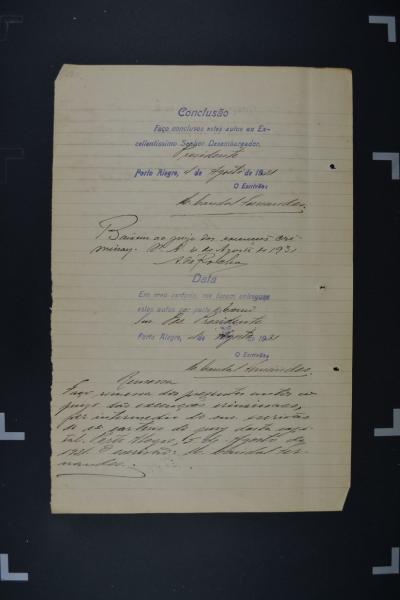 Conclusão
Faço conclusos estes autos ao Ex-
cellentissimo Senhor Desembargador.
Presidente
Porto Alegre, 4 de Agosto de 1931
O Escrivão,
M. Candal Fernandes.
Baixem ao juizo das execuções cri-
minaes. P. A. 4 de Agosto de 1931.
Data
Em meu cartorio, me foram entregues
estes autos por parte do
Snr. Presidente
Porto Alegre, 4 de Agosto de 1931
O Escrivão,
M. Candal Fernandes.
Remessa
Faço remessa dos presentes autos ao
juizo das execuções criminaes,
por intermedio do escrivão
do jury desta capi-
tal. Porto Alegre, 5 de Agosto de
1931. O escrivão: M. Candal Fer-
nandes.